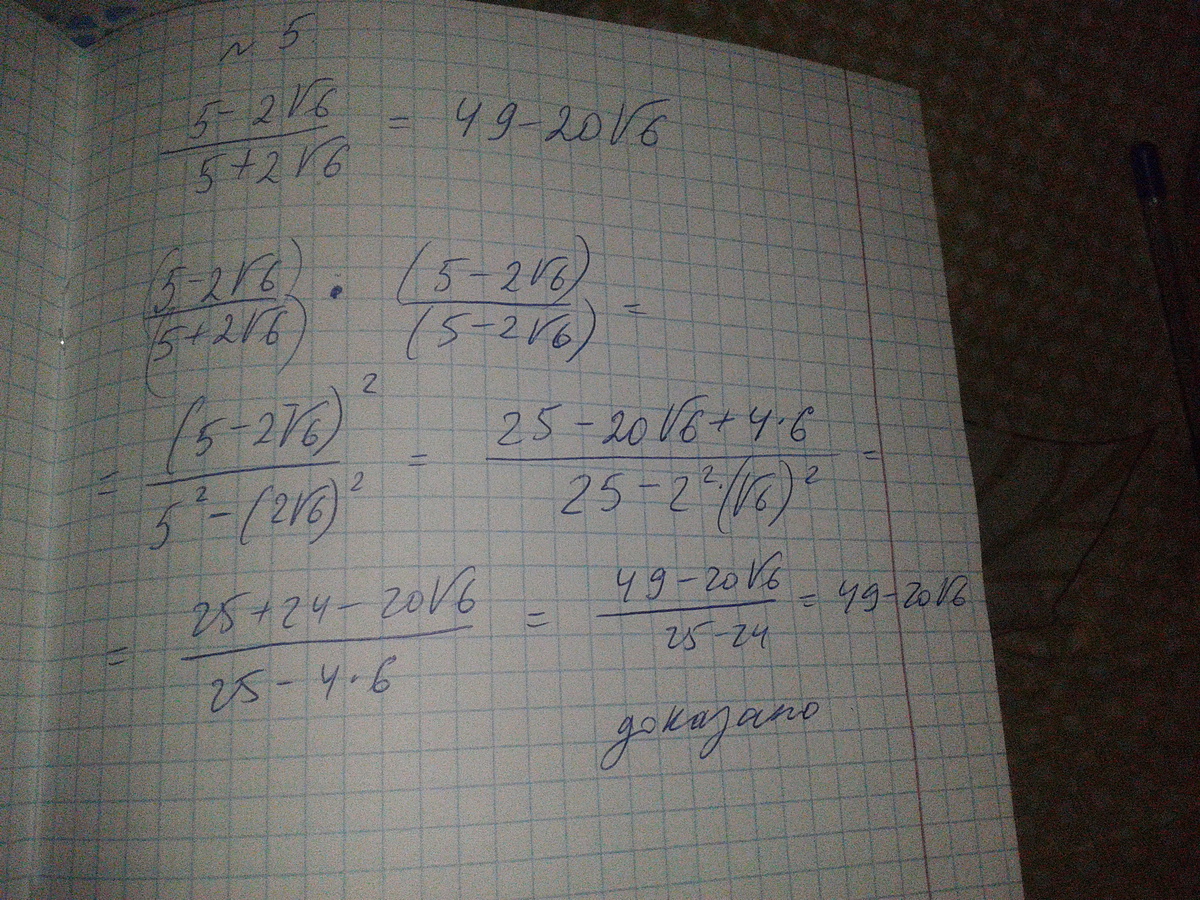 № 5.
(5-2√6)/(5+2√6) = 49-20√6
(5-2√6)/(5+2√6) · (5-2√6)/(5-2√6) =
= (5-2√6)²/(5²-(2√6)²) = (25-20√6+4·6)/(25-2²·(√6)²) =
= (25+24-20√6)/(25-4·6) = (49-20√6)/(25-24) = 49-20√6
доказано